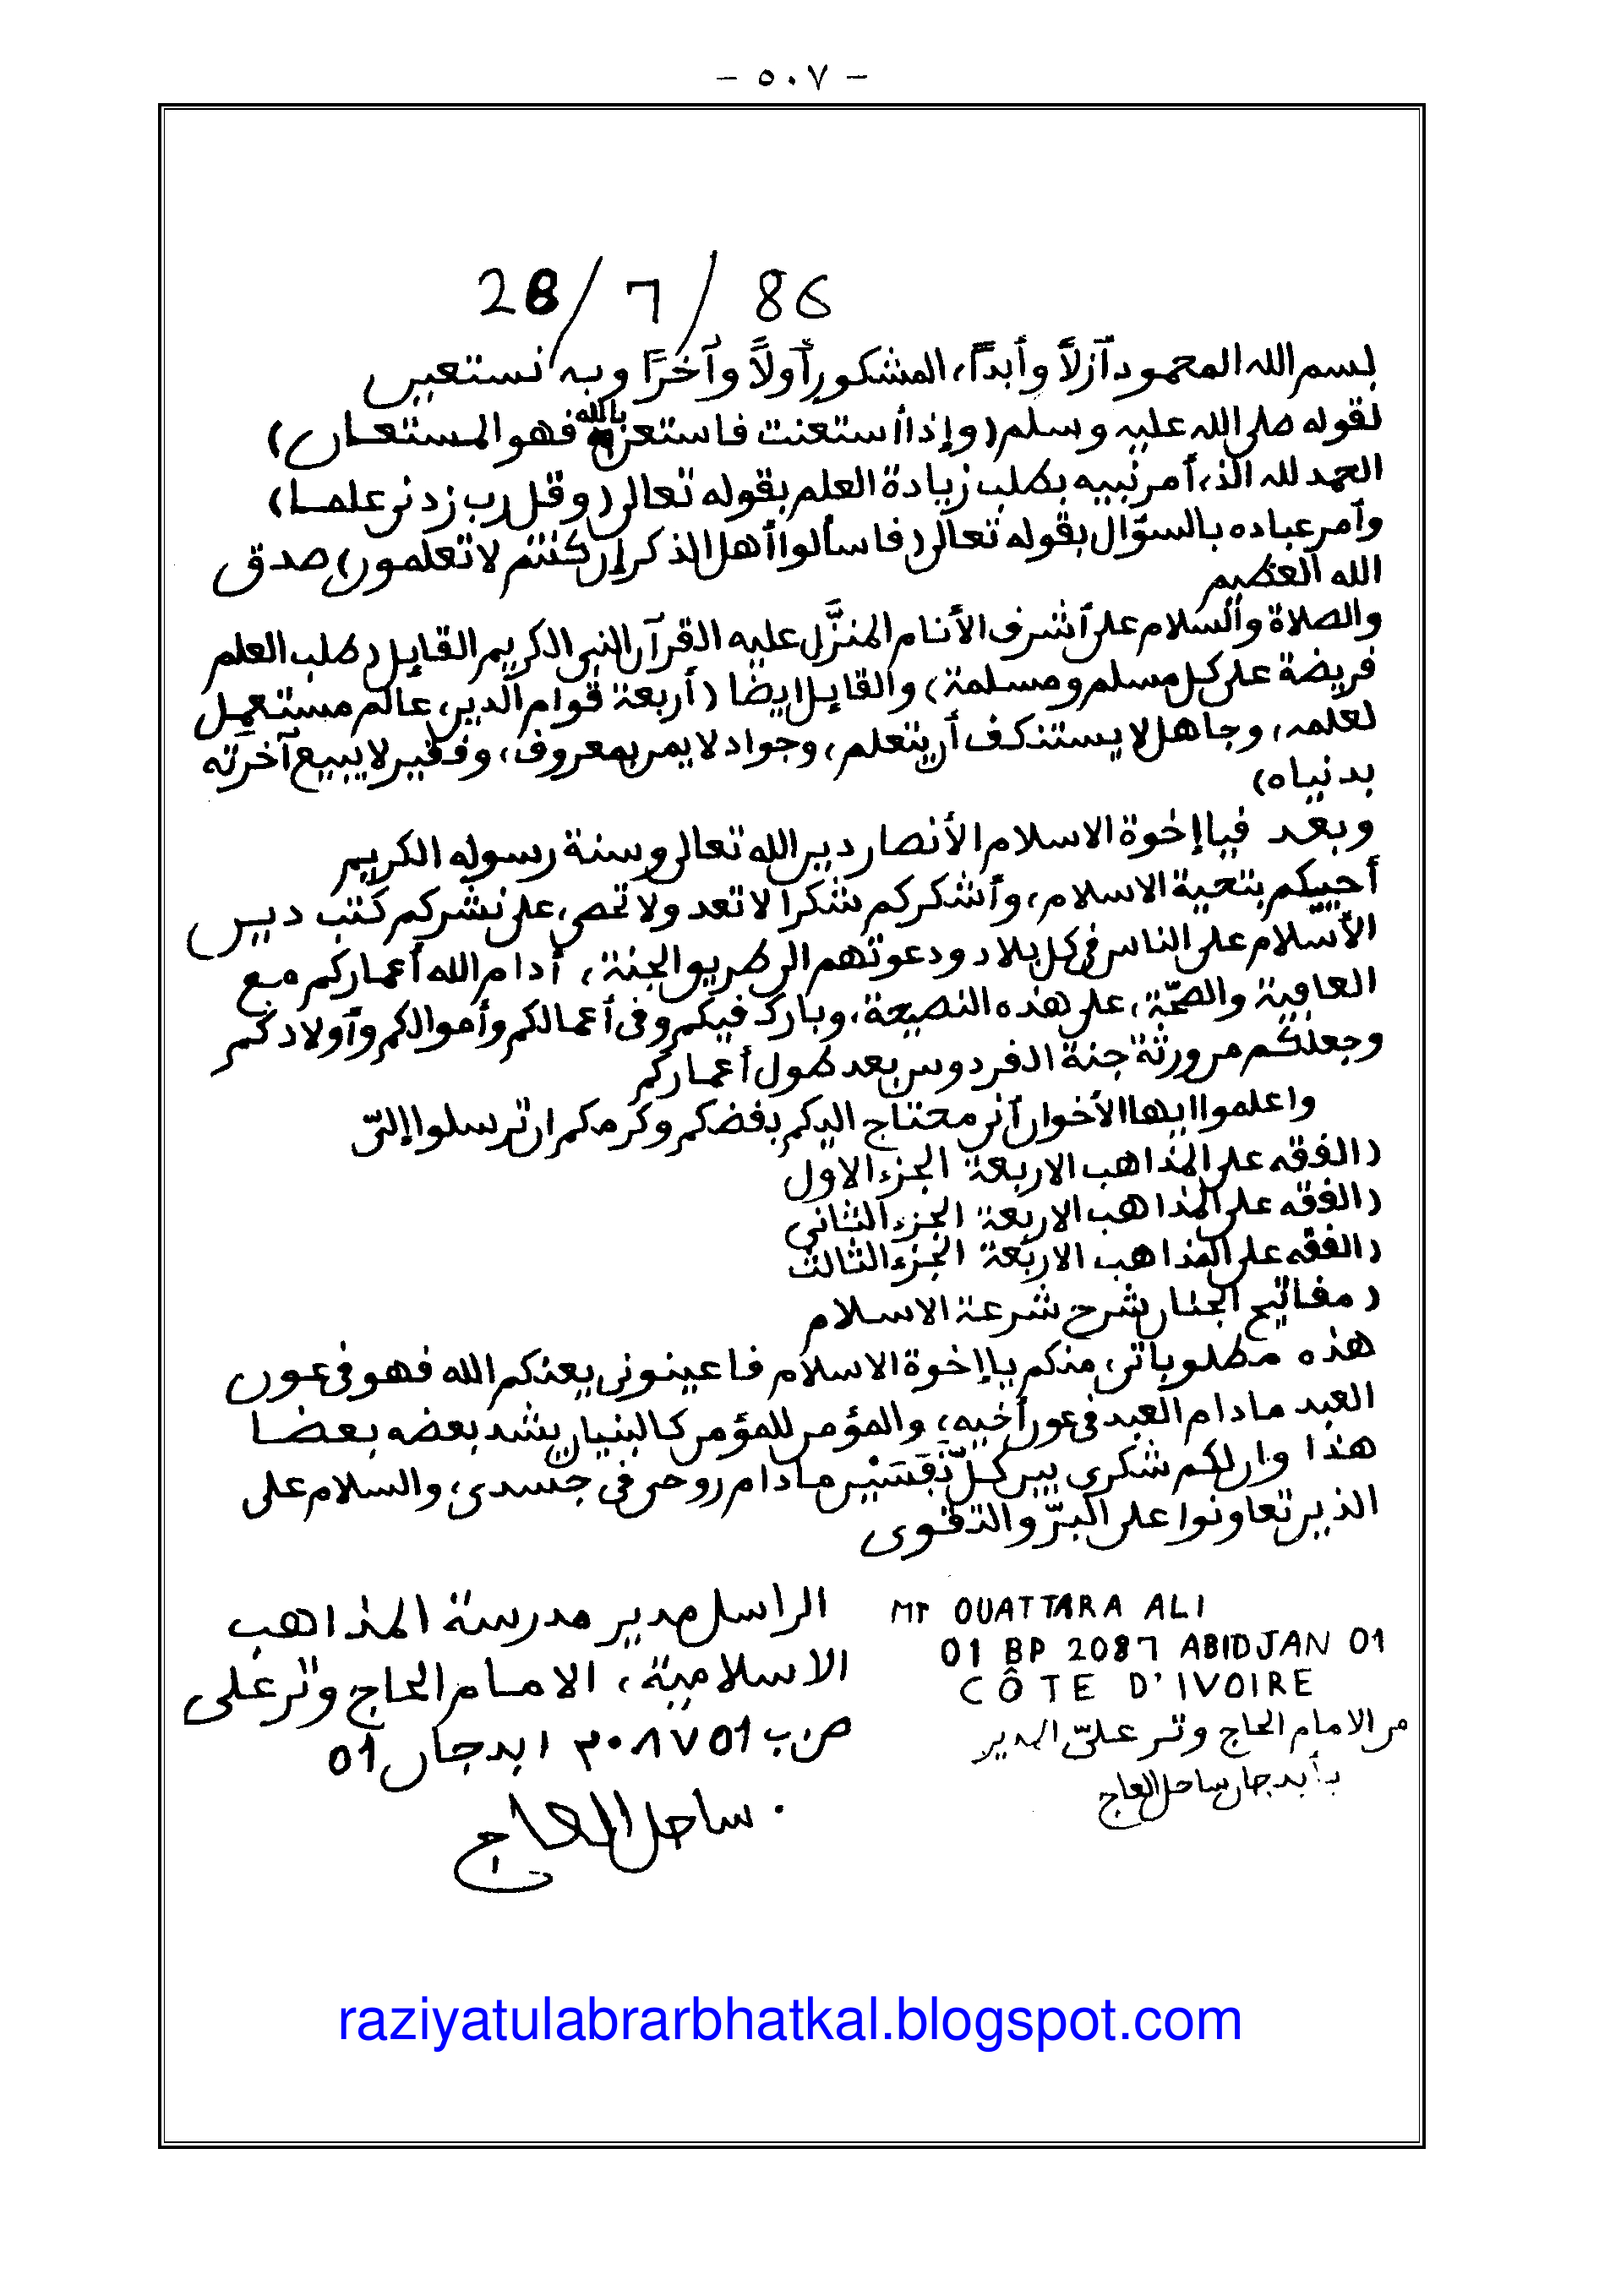 - ٥٠٧ -
28/7/86
بسم الله المحمود آزلاً وأبداً، المشكور أولاً وآخرًا وبه نستعين
لقوله صلى الله عليه وسلم (وإذا أستعنت فاستعن بالله فهو المستعان)
الحمد لله الذى أمر نبيه بطلب زيادة العلم بقوله تعالى (وقل رب زدنى علما)
وأمر عباده بالسؤال بقوله تعالى (فاسألوا أهل الذكر إن كنتم لا تعلمون) صدق
الله العظيم
والصلاة والسلام على أشرف الأنام المنزَّل عليه القرآن النبى الكريم القايل (طلب العلم
فريضة على كل مسلم ومسلمة) والقايل ايضا (أربعة قوام الدين، عالم مستعمل
لعلمه، وجاهل لا يستنكف أن يتعلم، وجواد لا يمن بمعروف، وفقير لا يبيع آخرته
بدنياه)
وبعد فيا إخوة الاسلام الأنصار دين الله تعالى وسنة رسوله الكريم
أحييكم بتحية الاسلام، وأشكركم شكرا لا تعد ولا تحصى على نشركم كتب دين
الأسلام على الناس فى كل بلاد ودعوتهم الى طريق الجنة، أدام الله أعماركم مع
العافية والصحّة، على هذه النصيحة، وبارك فيكم وفى أعمالكم وأموالكم وأولادكم
وجعلكم من ورثة جنة الفردوس بعد طول أعماركم
واعلموا ايها الأخوان أنى محتاج اليكم بفضكم وكرمكم ان ترسلوا إلىّ
(الفقه على المذاهب الاربعة الجزء الاول
(الفقه على المذاهب الاربعة الجزء الثانى
(الفقه على المذاهب الاربعة الجزء الثالث
(مفاتيح الجنان شرح شرعة الاسلام
هذه مطلوباتى منكم يا إخوة الاسلام فاعينونى يعنكم الله فهو فى عون
العبد مادام العبد فى عون أخيه، والمؤمن للمؤمن كالبنيان يشد بعضه بعضا
هذا وان لكم شكرى بين كلّ نَفَسَيْن مادام روحى فى جسدى، والسلام على
الذين تعاونوا على البرّ والتقوى
الراسل مدير مدرسة المذاهب
الاسلامية، الامام الحاج وتر على
ص.ب 01 ٢٠٨٧ ابدجان 01
ساحل العاج
Mr OUATTARA ALI
01 BP 2087 ABIDJAN 01
CÔTE D'IVOIRE
من الامام الحاج وتر علىّ المدير
بأبدجان ساحل العاج
raziyatulabrarbhatkal.blogspot.com